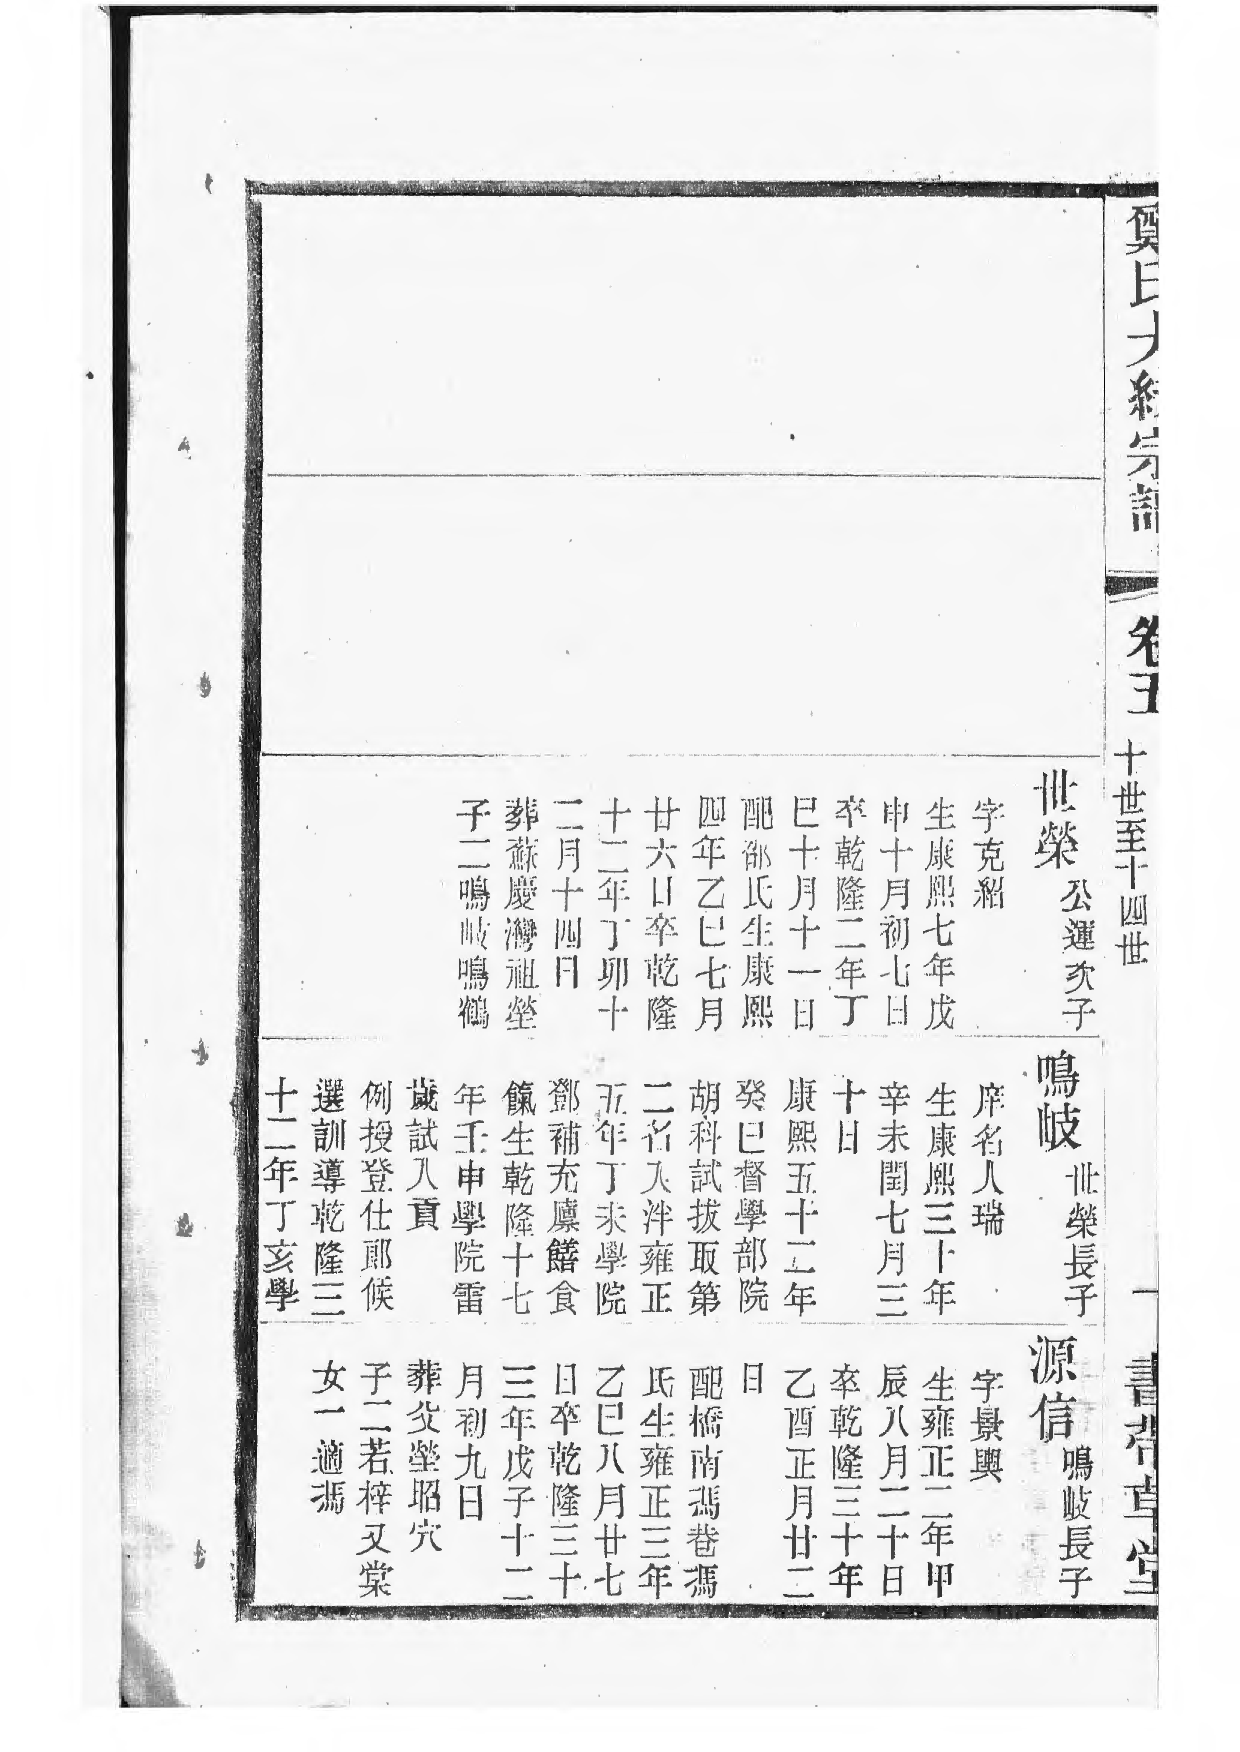 鄭氏大統宗譜
卷五
十世至十四世
一
書帶草堂
世榮
公運次子
字克紹
生康熙七年戊
申十月初七日
卒乾隆二年丁
巳十月十一日
配邵氏生康熙
四年乙巳七月
廿六日卒乾隆
十二年丁卯十
二月十四日
葬蘇慶灣祖塋
子二鳴岐鳴鶴
鳴岐
世榮長子
庠名人瑞
生康熙三十年
辛未閏七月三
十日
康熙五十二年
癸巳督學部院
胡科試拔取第
二名入泮雍正
五年丁未學院
鄧補充廩饍食
餼生乾隆十七
年壬申學院雷
歲試入貢
例授登仕郎候
選訓導乾隆三
十二年丁亥學
源信
鳴岐長子
字景輿
生雍正二年甲
辰八月二十日
卒乾隆三十年
乙酉正月廿二
日
配橋南馮巷馮
氏生雍正三年
乙巳八月廿七
日卒乾隆三十
三年戊子十二
月初九日
葬父塋昭穴
子二若梓又棠
女一適馮